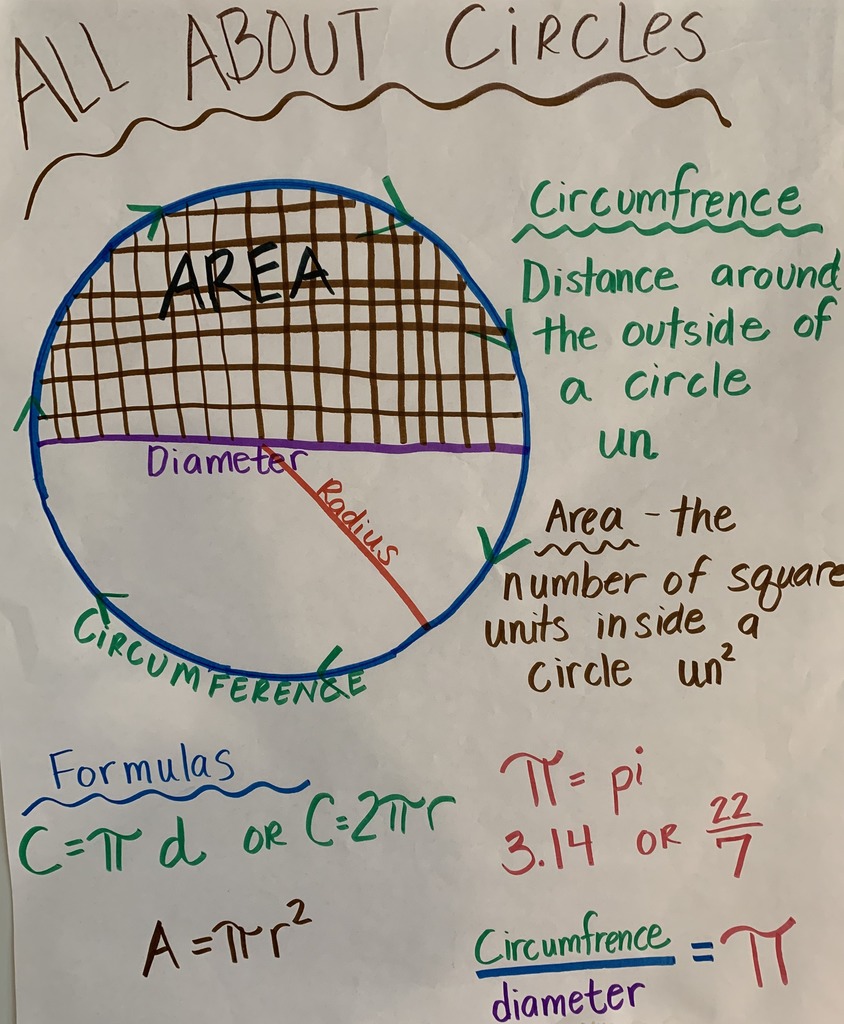 ALL ABOUT CIRCLES
AREA
Diameter
Radius
CIRCUMFERENCE
Circumfrence
Distance around
the outside of
a circle
un
Area - the
number of square
units inside a
circle un²
Formulas
C=π d OR C=2πr
A=πr²
π= pi
3.14 OR 22/7
Circumfrence
diameter
= π